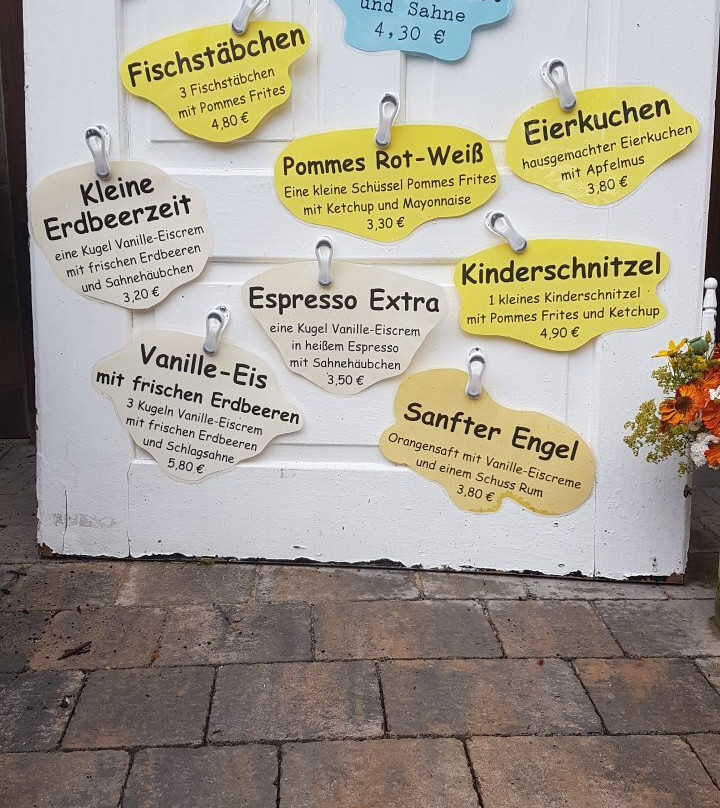 und Sahne
4,30 €
Fischstäbchen
3 Fischstäbchen
mit Pommes Frites
4,80 €
Eierkuchen
hausgemachter Eierkuchen
mit Apfelmus
3,80 €
Pommes Rot-Weiß
Eine kleine Schüssel Pommes Frites
mit Ketchup und Mayonnaise
3,30 €
Kleine
Erdbeerzeit
eine Kugel Vanille-Eiscrem
mit frischen Erdbeeren
und Sahnehäubchen
3,20 €
Kinderschnitzel
1 kleines Kinderschnitzel
mit Pommes Frites und Ketchup
4,90 €
Espresso Extra
eine Kugel Vanille-Eiscrem
in heißem Espresso
mit Sahnehäubchen
3,50 €
Vanille-Eis
mit frischen Erdbeeren
3 Kugeln Vanille-Eiscrem
mit frischen Erdbeeren
und Schlagsahne
5,80 €
Sanfter Engel
Orangensaft mit Vanille-Eiscreme
und einem Schuss Rum
3,80 €